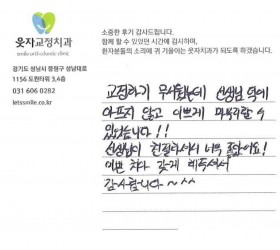 웃자교정치과
smile orthodontic clinic
경기도 성남시 중원구 성남대로
1156 도원타워 3,4층
031 606 0282
letssmile.co.kr
소중한 후기 감사드립니다.
함께 할 수 있었던 시간에 감사하며,
환자분들의 소리에 귀 기울이는 웃자치과가 되도록 하겠습니다.
교정하기 무서웠는데 선생님 덕에
아프지 않고 이쁘게 마무리할 수
있었습니다!!
선생님이 친절하셔서 너무 좋았어요!
이쁜 치아 갖게 해주셔서
감사합니다~^^